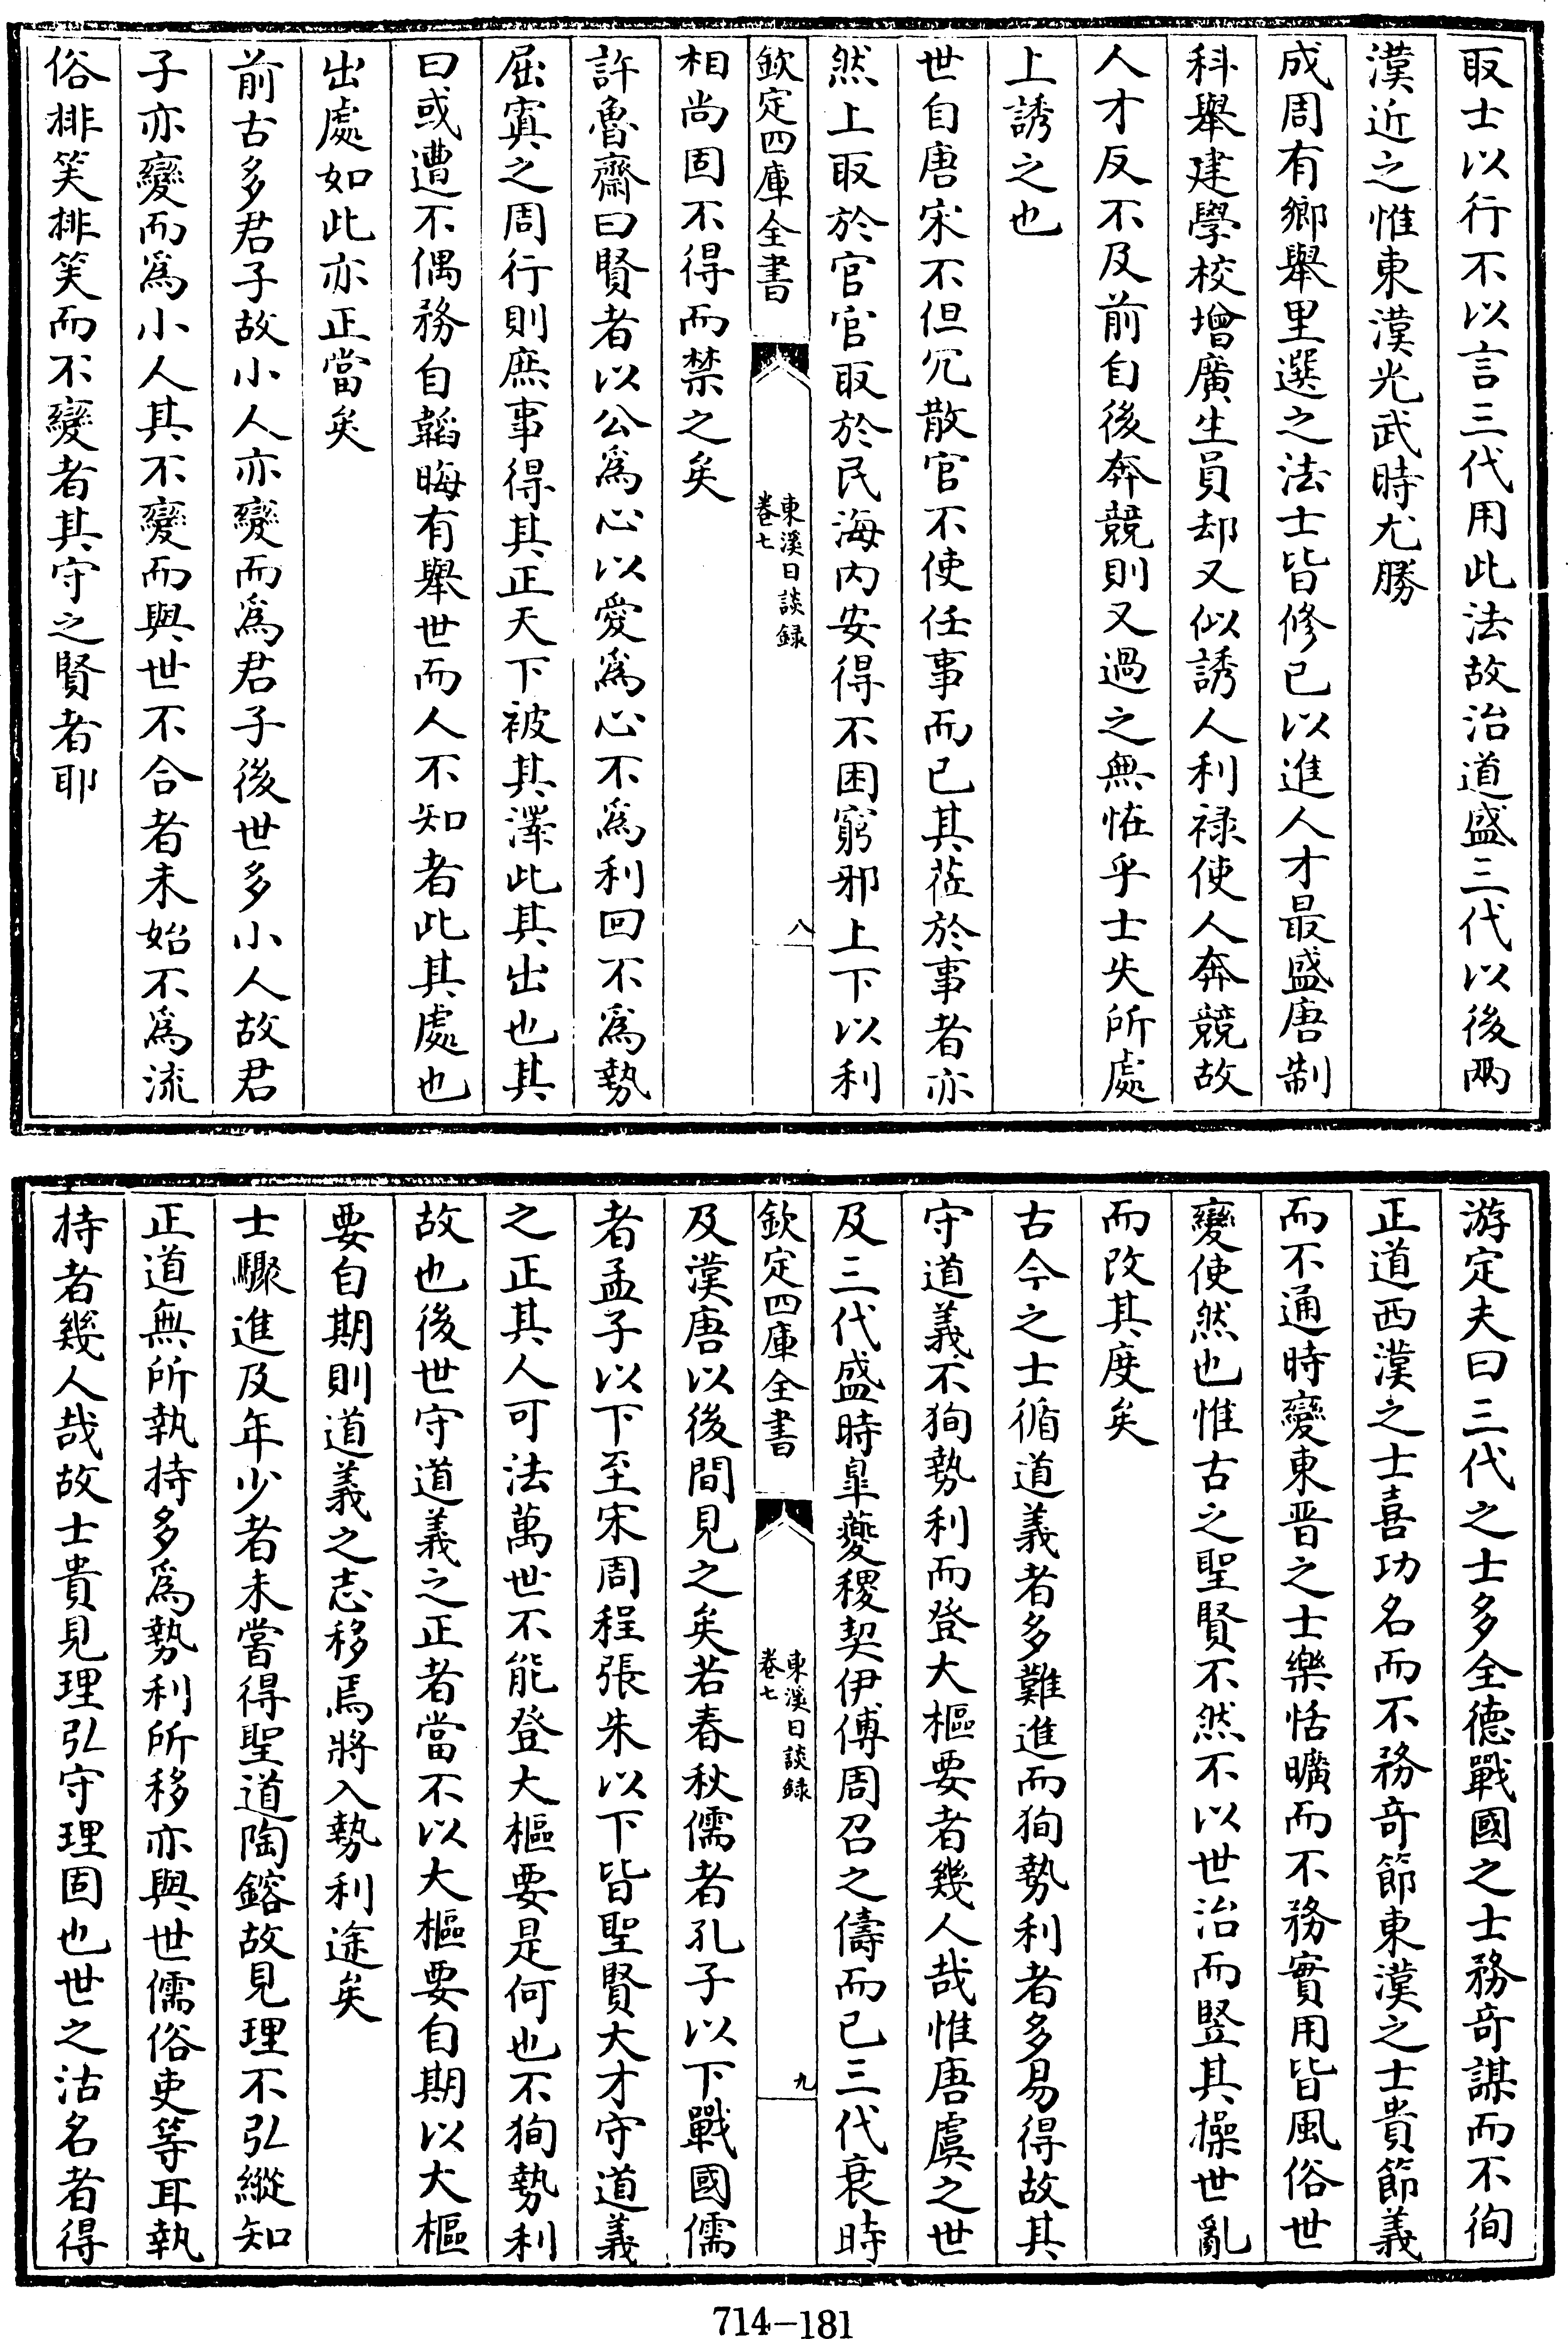 取士以行不以言三代用此法故治道盛三代以後兩
漢近之惟東漢光武時尤勝
成周有鄉舉里選之法士皆修已以進人才最盛唐制
科舉建學校增廣生員却又似誘人利祿使人奔競故
人才反不及前自後奔競則又過之無怪乎士失所處
上誘之也
世自唐宋不但冗散官不使任事而已其蒞於事者亦
然上取於官官取於民海内安得不困窮邪上下以利
欽定四庫全書
東溪日談録
卷七
八
相尚固不得而禁之矣
許魯齋曰賢者以公為心以愛為心不為利回不為勢
屈寘之周行則庶事得其正天下被其澤此其出也其
曰或遭不偶務自韜晦有舉世而人不知者此其處也
出處如此亦正當矣
前古多君子故小人亦變而為君子後世多小人故君
子亦變而為小人其不變而與世不合者未始不為流
俗排笑排笑而不變者其守之賢者耶
游定夫曰三代之士多全德戰國之士務奇謀而不徇
正道西漢之士喜功名而不務奇節東漢之士貴節義
而不通時變東晋之士樂恬曠而不務實用皆風俗世
變使然也惟古之聖賢不然不以世治而竪其操世亂
而改其度矣
古今之士循道義者多難進而狥勢利者多易得故其
守道義不狥勢利而登大樞要者幾人哉惟唐虞之世
及三代盛時臯夔稷契伊傅周召之儔而已三代衰時
欽定四庫全書
東溪日談録
卷七
九
及漢唐以後間見之矣若春秋儒者孔子以下戰國儒
者孟子以下至宋周程張朱以下皆聖賢大才守道義
之正其人可法萬世不能登大樞要是何也不狥勢利
故也後世守道義之正者當不以大樞要自期以大樞
要自期則道義之志移焉將入勢利途矣
士驟進及年少者未嘗得聖道陶鎔故見理不弘縱知
正道無所執持多為勢利所移亦與世儒俗吏等耳執
持者幾人哉故士貴見理弘守理固也世之沽名者得
714-181